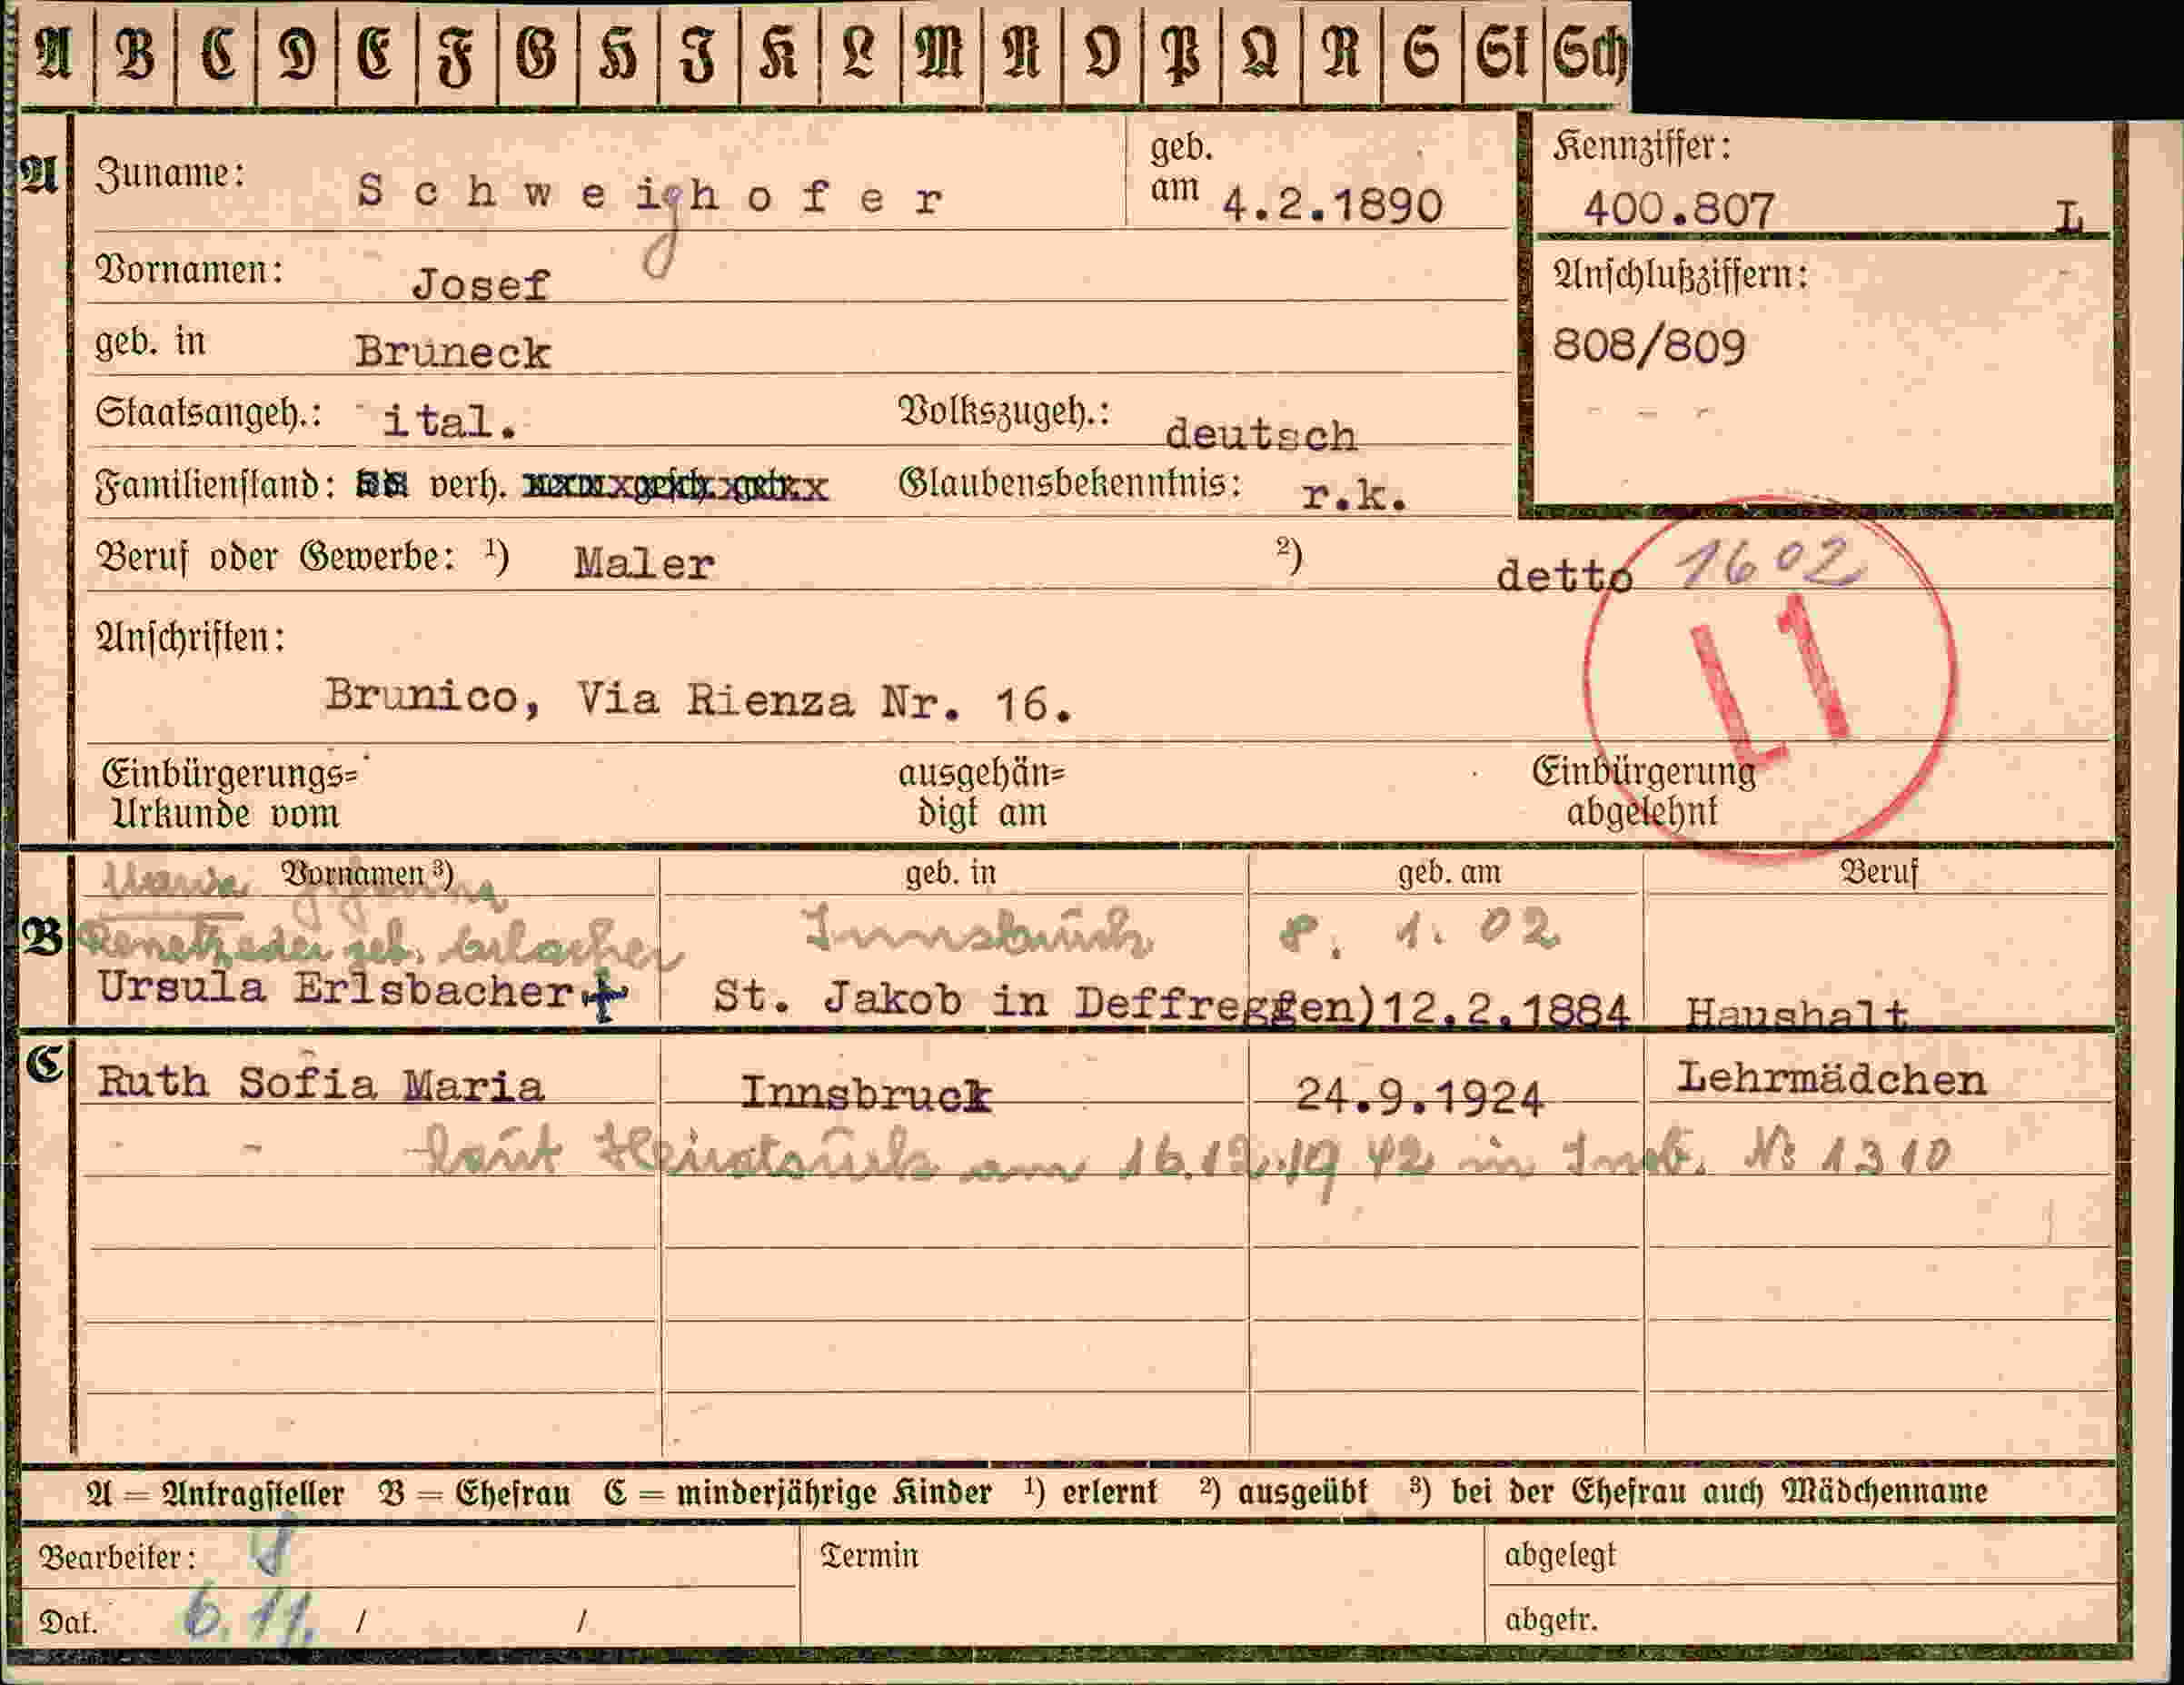 A B C D E F G H I K L M N O P Q R S St Sch
A Zuname: Schweighofer geb. am 4.2.1890 Kennziffer: 400.807 L
Vornamen: Josef Anschlußziffern: 808/809
geb. in Bruneck
Staatsangeh.: ital. Volkszugeh.: deutsch
Familienstand: verh. Glaubensbekenntnis: r.k.
Beruf oder Gewerbe: ¹) Maler ²) detto 1602
L1
Anschriften:
Brunico, Via Rienza Nr. 16.
Einbürgerungs= ausgehän= Einbürgerung
Urkunde vom digt am abgelehnt
Vornamen ³) geb. in geb. am Beruf
Maria
B geb. Innsbruck 8. 1. 02
Ursula Erlsbacher + St. Jakob in Deffreggen) 12.2.1884 Haushalt
C Ruth Sofia Maria Innsbruck 24.9.1924 Lehrmädchen
laut Heiratsurk am 16.12.1942 in Insb. No 1310
A = Antragsteller B = Ehefrau C = minderjährige Kinder ¹) erlernt ²) ausgeübt ³) bei der Ehefrau auch Mädchenname
Bearbeiter: Termin abgelegt
Dat. 6.11. / / abgetr.